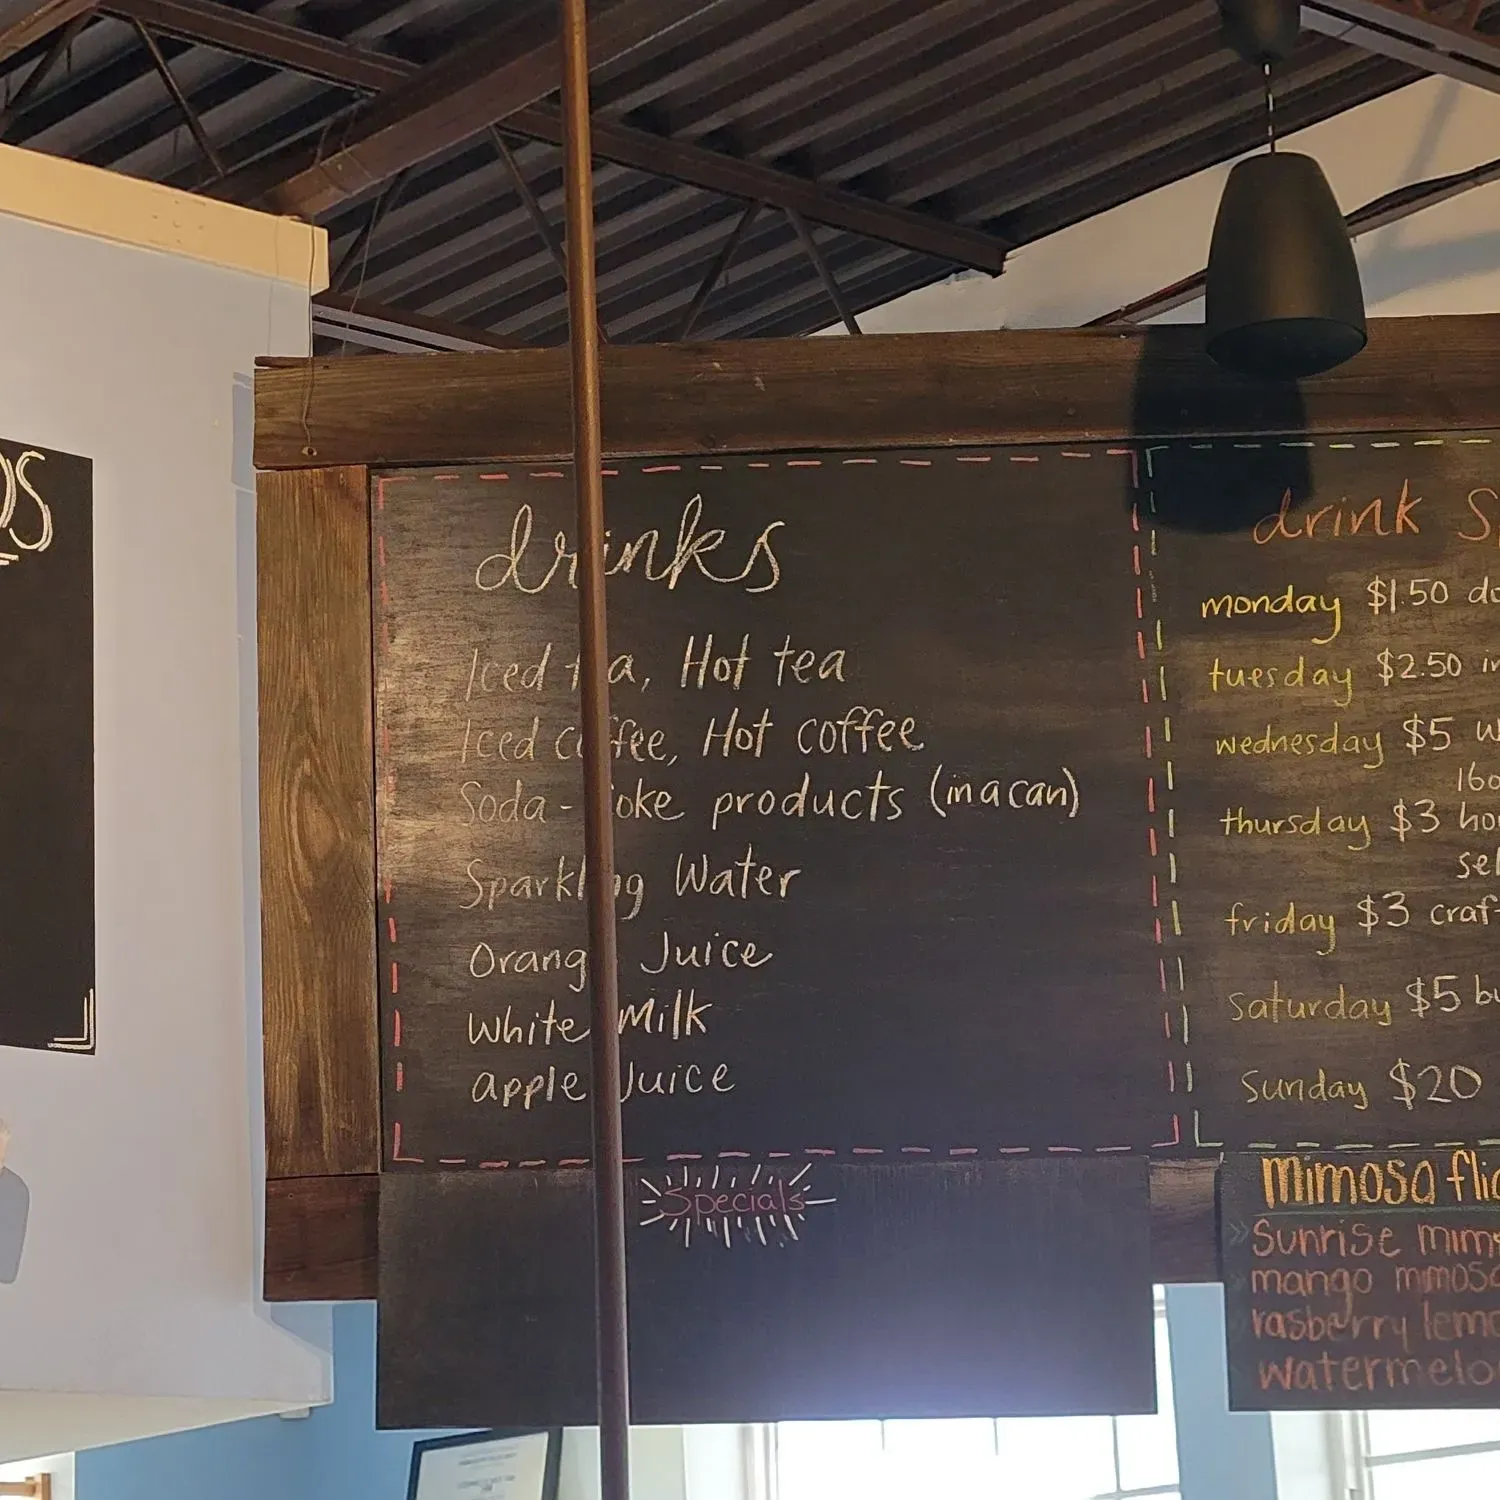 drinks
Iced tea, Hot tea
Iced coffee, Hot coffee
Soda - Coke products (in a can)
Sparkling Water
Orange Juice
White Milk
apple Juice
Specials
drink
monday $1.50
tuesday $2.50
wednesday $5
thursday $3
friday $3
saturday $5
Sunday $20
mimosa
Sunrise
mango
rasberry